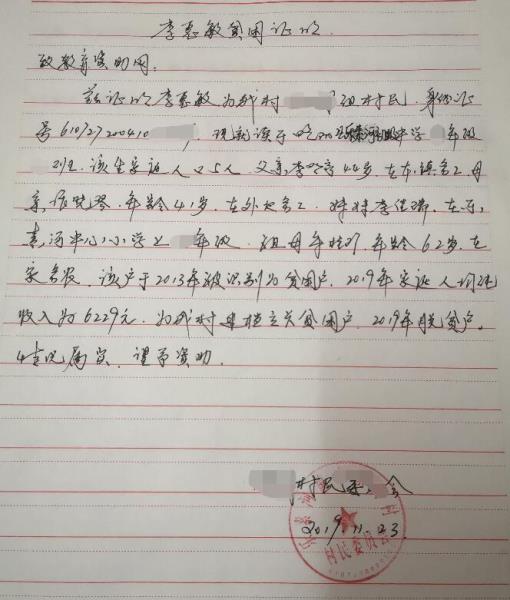 李惠敏贫困证明
致教育资助网:
兹证明李惠敏为我村 组村民,身份证
号610727200410 ,现就读于 中学 年级
班,该生家庭人口5人,父亲李 44岁,在本镇务工,母
亲 ,年龄41岁,在外务工,妹妹李佳 ,在
小学 年级,祖母 ,年龄62岁,在
家务农,该户于2013年被识别为贫困户,2019年家庭人均纯
收入为6229元,为我村建档立卡贫困户,2019年脱贫户。
情况属实,谨予资助。
村民委 会
2019.11.23
村民委员会